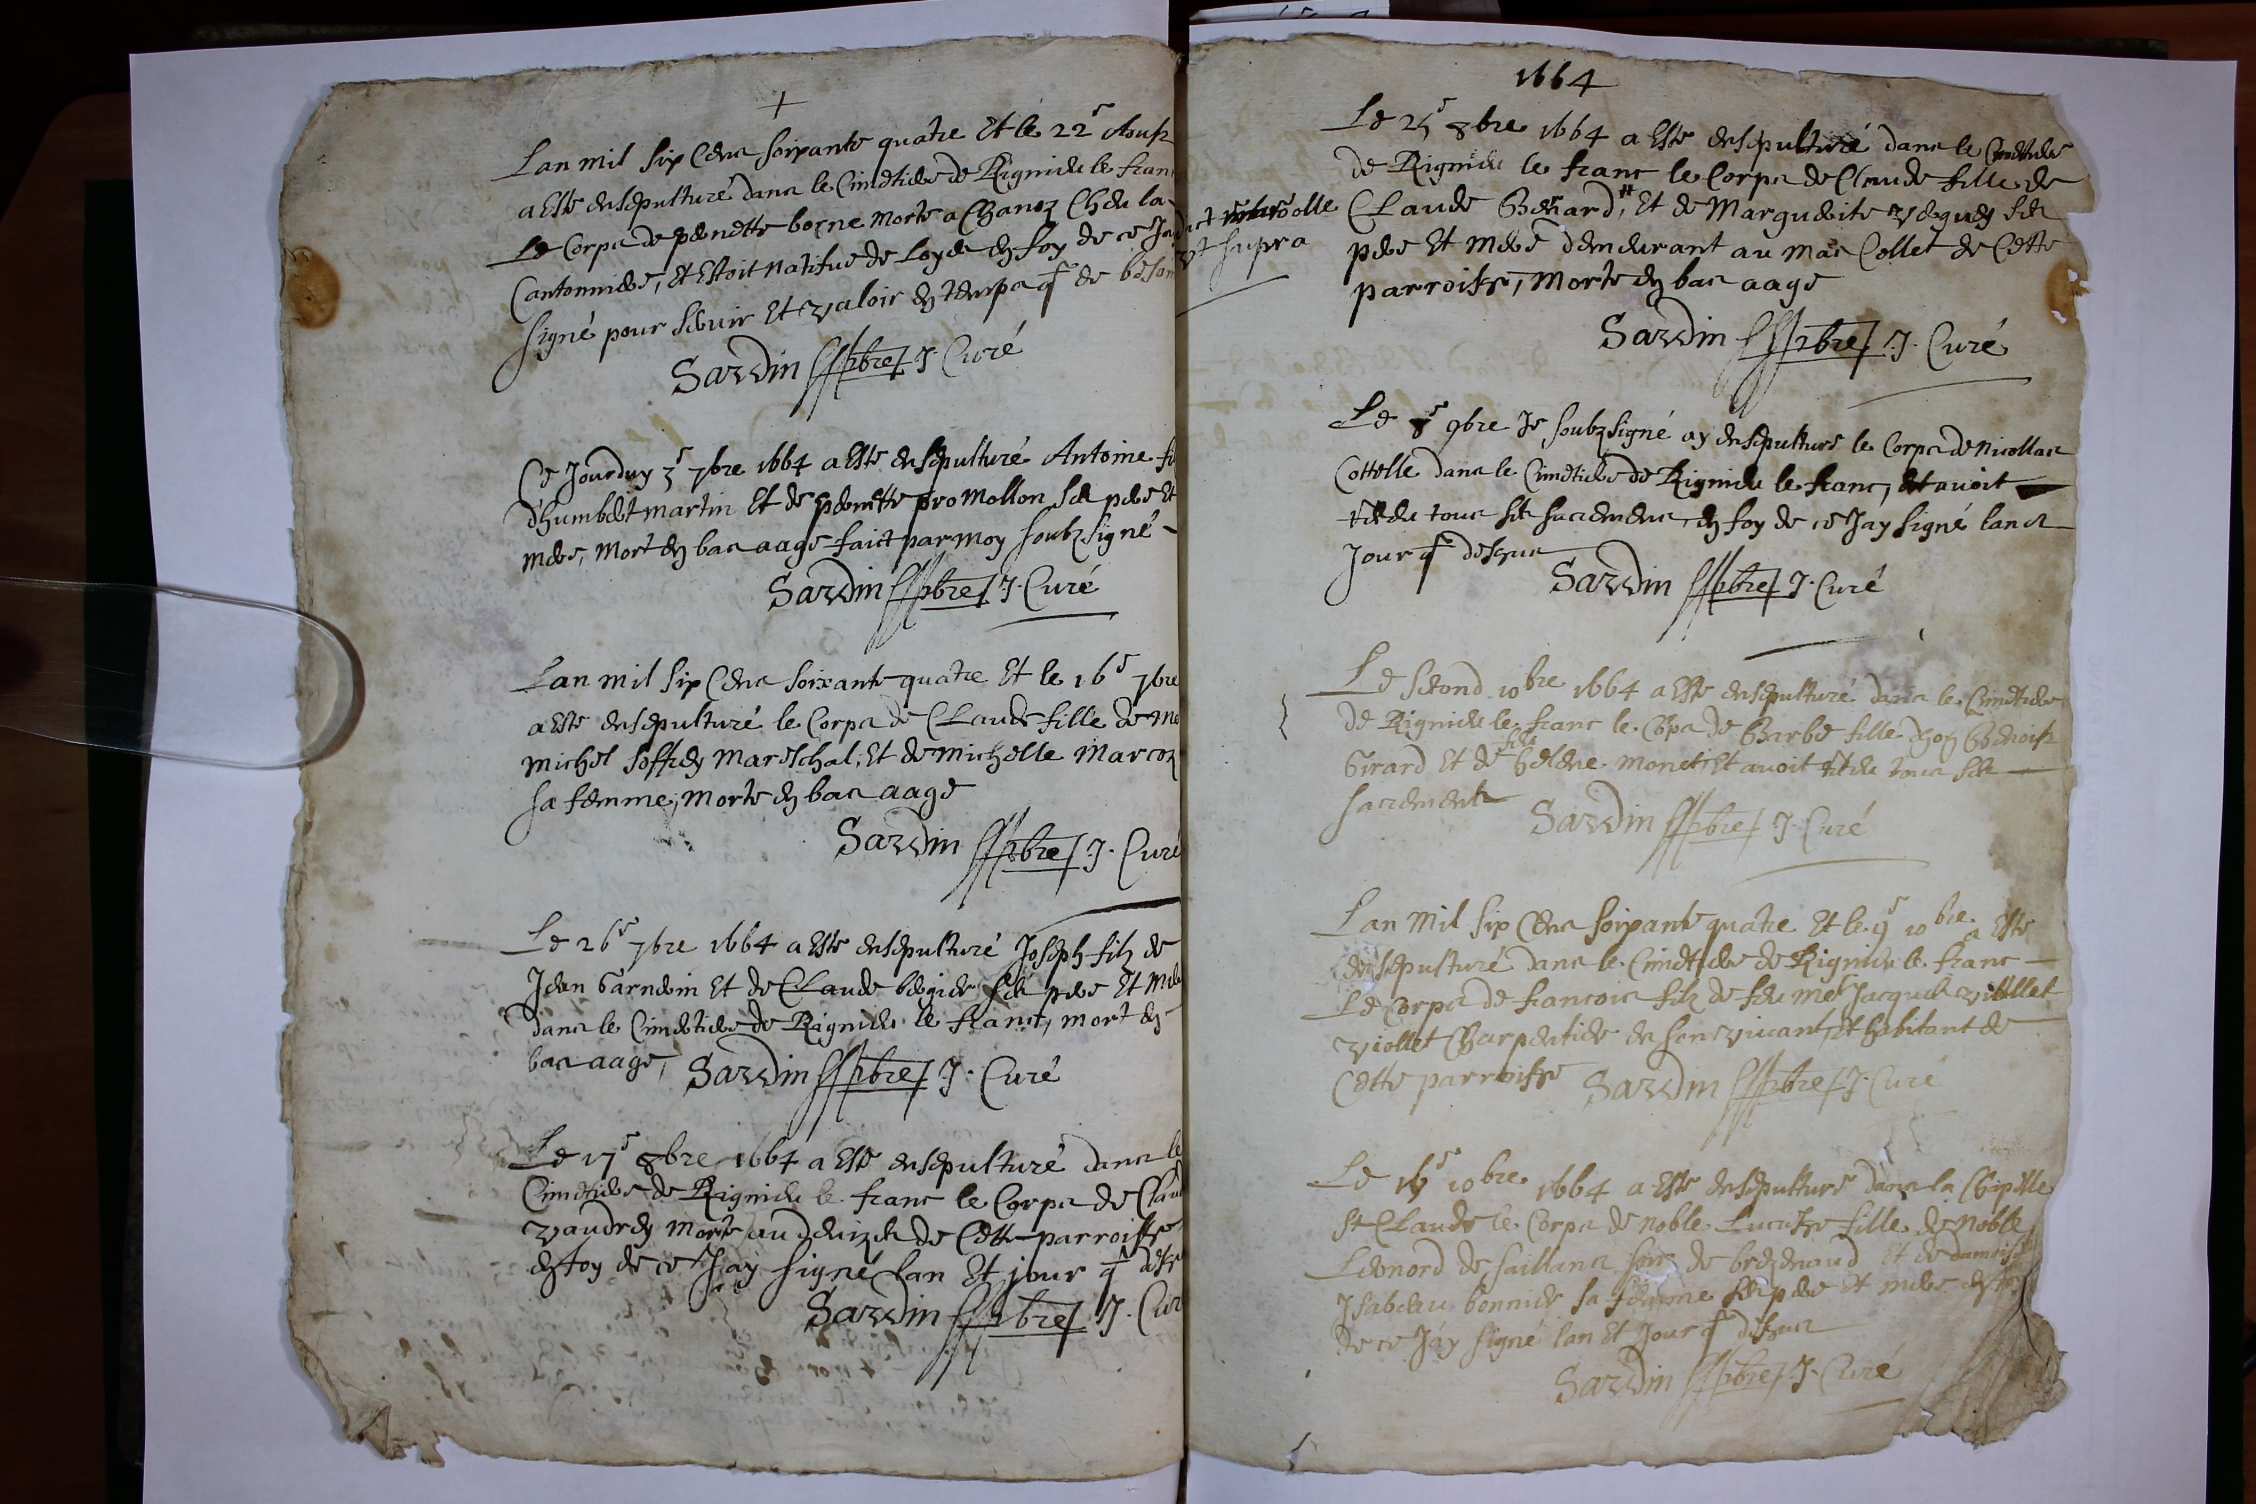 +
Lan mil six Cens soixante quatre Et le 22e Aoust
a Este ensepulturé dans le Cimetiere de Rignieu le franc
Le Corps de pernette borne morte a Chanoz Chez la
Cantonniere, Et Estoit natifue de Loyes En foy de ce Jay
signé pour seruir Et valoir En temps q de besoin
Sardin pbre J. Curé
Ce Jourduy 3e 7bre 1664 a Este ensepulturé Antoine fi
dhumbert martin Et de pernette promollon ses pere Et
mere, mort En bas aage faict par moy soubzsigné
Sardin pbre J. Curé
Lan mil six Cens soixante quatre Et le 16e 7bre
a Este ensepulturé le Corps de Claude fille de me
michel soffrey mareschal, Et de michelle marcoz
sa femme, morte En bas aage
Sardin pbre J. Curé
Le 26e 7bre 1664 a Este ensepulturé Joseph filz de
Jean Garnerin Et de Claude ses pere Et mere
dans le Cimetiere de Rignieu le franc, mort En
bas aage, Sardin pbre J. Curé
Le 17e 8bre 1664 a Este ensepulturé dans le
Cimetiere de Rignieu le franc le Corps de Clau
vaudrey morte au de Cette parroisse
En foy de ce Jay signé lan Et jour q dess
Sardin pbre J. Cur
1664
Le 25e 8bre 1664 a Este ensepulturé dans le Cimetiere
de Rignieu le franc le Corps de Claude fille de
Claude Benard, Et de Marguerite ses
vt supra
pere Et mere demeurant au mas Collet de Cette
parroisse, morte En bas aage
Sardin pbre J. Curé
Le 8e 9bre Je soubzsigné ay ensepulture le Corps de Nicollas
Cottelle dans le Cimetiere de Rignieu le franc, Et auoit
receu tous ses sacremens, En foy de ce Jay signé lan et
Jour q dessus
Sardin pbre J. Curé
Le second 10bre 1664 a Este ensepulturé dans le Cimetiere
de Rignieu le franc le Corps de Barbe fille dhon Benoist
Girard Et de feu helene monet Et auoit receu tous ses
sacrements
Sardin pbre J. Curé
Lan mil six Cens soixante quatre Et le 9e 10bre a Este
ensepulturé dans le Cimetiere de Rignieu le franc
Le Corps de francois filz de feu me Jacques
viollet Charpentier en son viuant, Et habitant de
Cette parroisse Sardin pbre J. Curé
Le 10bre 1664 a Este ensepulture dans la Chapelle
St Claude le Corps de noble Lucresse fille de Noble
Leonord de saillans de brezenaud et de damois
Isabeau bonnier sa femme ses pere et mere En foy
de ce Jay signé lan Et Jour q dessus
Sardin pbre J. Curé